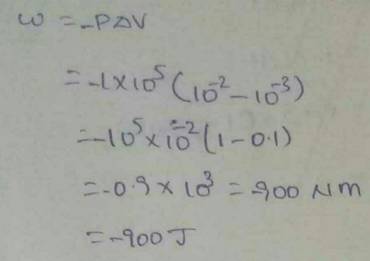 W = -PΔV
= -1×10⁵ (10⁻² - 10⁻³)
= -10⁵×10⁻² (1-0.1)
= -0.9 × 10³ = -900 Nm
= -900 J